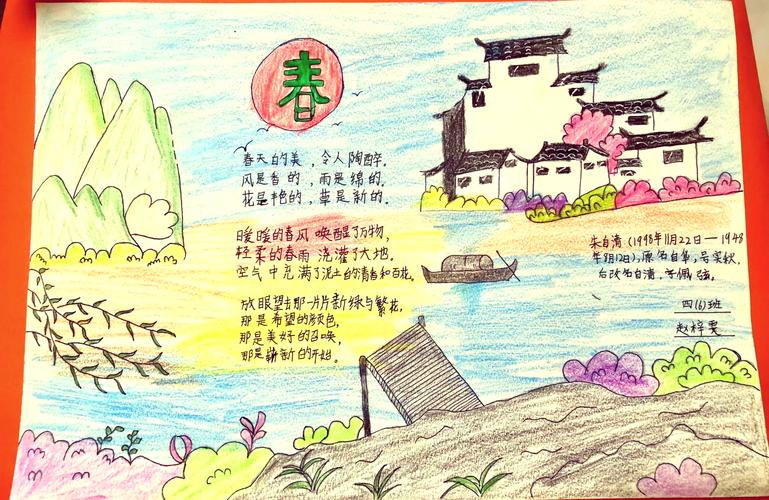 春
春天的美，令人陶醉。
风是香的，雨是绵的，
花是艳的，草是新的。
暖暖的春风 唤醒了万物，
轻柔的春雨 浇灌了大地。
空气中充满了泥土的清香和百花。
放眼望去那一片片新绿与繁花，
那是希望的颜色，
那是美好的召唤，
那是崭新的开始。
朱自清（1998年11月22日—1948
年8月12日），原名自华，号实秋，
后改名自清，字佩弦。
四（6）班
赵梓